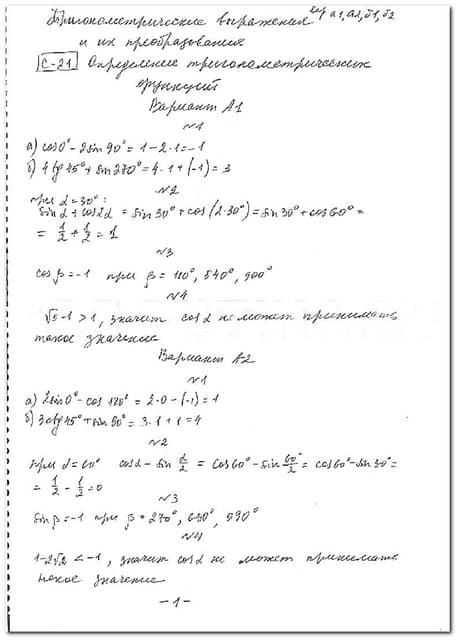 Тригонометрические выражения вар А1, А2, Б1, Б2
и их преобразования
С-21 Определение тригонометрических
функций
Вариант А1
№1
а) cos0° - 2sin90° = 1 - 2·1 = -1
б) 4tg45° + sin270° = 4·1 + (-1) = 3
№2
при α = 30°:
sinα + cos2α = sin30° + cos(2·30°) = sin30° + cos60° =
= 1/2 + 1/2 = 1
№3
cosβ = -1 при β = 180°, 540°, 900°
№4
√5 - 1 > 1, значит cosα не может принимать
такое значение
Вариант А2
№1
а) 2sin0° - cos180° = 2·0 - (-1) = 1
б) 3ctg45° + sin90° = 3·1 + 1 = 4
№2
при α = 60° cosα - sin α/2 = cos60° - sin 60°/2 = cos60° - sin30° =
= 1/2 - 1/2 = 0
№3
sinβ = -1 при β = 270°, 630°, 990°
№4
1 - 2√2 < -1, значит cosα не может принимать
такое значение
- 1 -